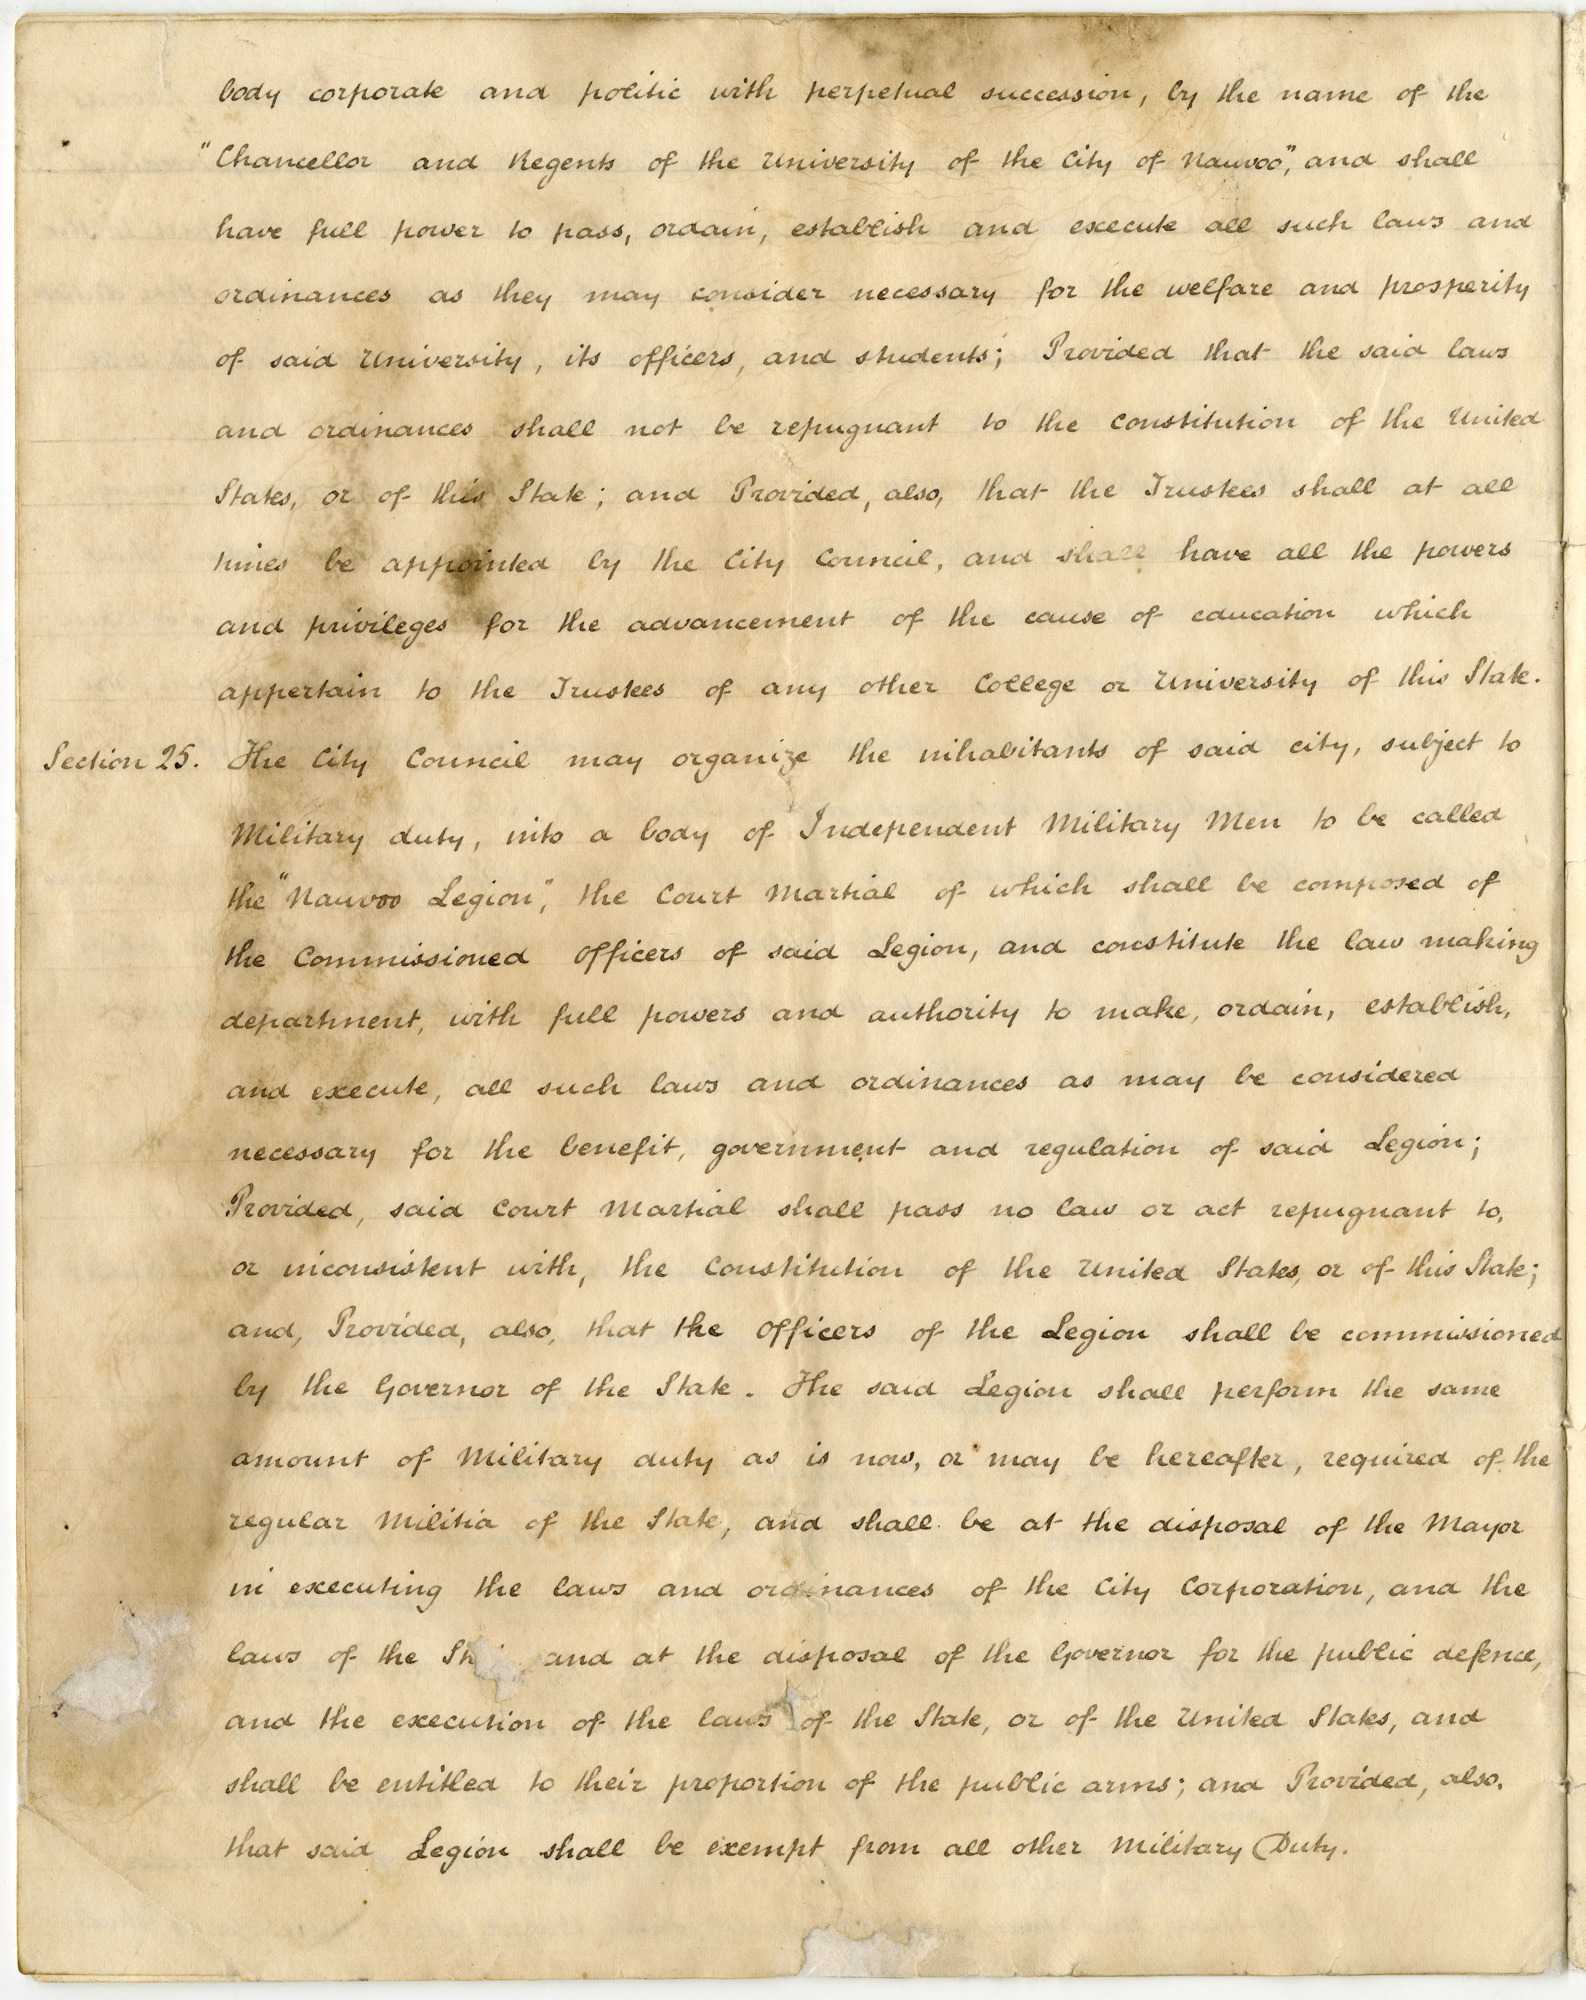 body corporate and politic with perpetual succession, by the name of the
"Chancellor and Regents of the University of the City of Nauvoo", and shall
have full power to pass, ordain, establish and execute all such laws and
ordinances as they may consider necessary for the welfare and prosperity
of said University, its officers, and students; Provided that the said laws
and ordinances shall not be repugnant to the Constitution of the United
States, or of this State; and Provided, also, that the Trustees shall at all
times be appointed by the City Council, and shall have all the powers
and privileges for the advancement of the cause of education which
appertain to the Trustees of any other College or University of this State.
Section 25. The City Council may organize the inhabitants of said city, subject to
Military duty, into a body of Independent Military Men to be called
the "Nauvoo Legion", the Court Martial of which shall be composed of
the Commissioned Officers of said Legion, and constitute the law making
department, with full powers and authority to make, ordain, establish,
and execute, all such laws and ordinances as may be considered
necessary for the benefit, government and regulation of said Legion;
Provided, said Court Martial shall pass no law or act repugnant to,
or inconsistent with, the Constitution of the United States, or of this State;
and, Provided, also, that the Officers of the Legion shall be commissioned
by the Governor of the State. The said Legion shall perform the same
amount of Military duty as is now, or may be hereafter, required of the
regular Militia of the State, and shall be at the disposal of the Mayor
in executing the laws and ordinances of the City Corporation, and the
laws of the and at the disposal of the Governor for the public defence,
and the execution of the laws of the State, or of the United States, and
shall be entitled to their proportion of the public arms; and Provided, also,
that said Legion shall be exempt from all other Military Duty.